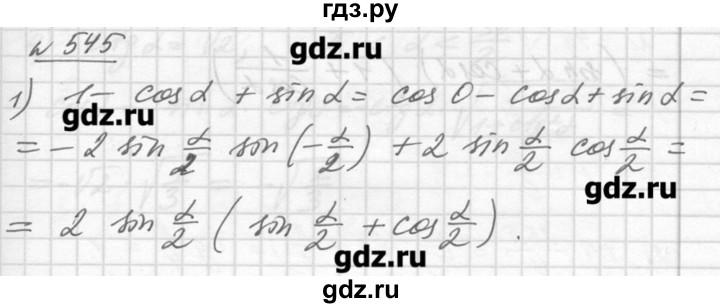 гдз.ру
№ 545
gdz.ru
1) 1 - cos α + sin α = cos 0 - cos α + sin α =
gdz.ru
= - 2 sin α/2 sin (-α/2) + 2 sin α/2 cos α/2 =
gdz.ru
= 2 sin α/2 ( sin α/2 + cos α/2 ) .
gdz.ru
гдз.ру